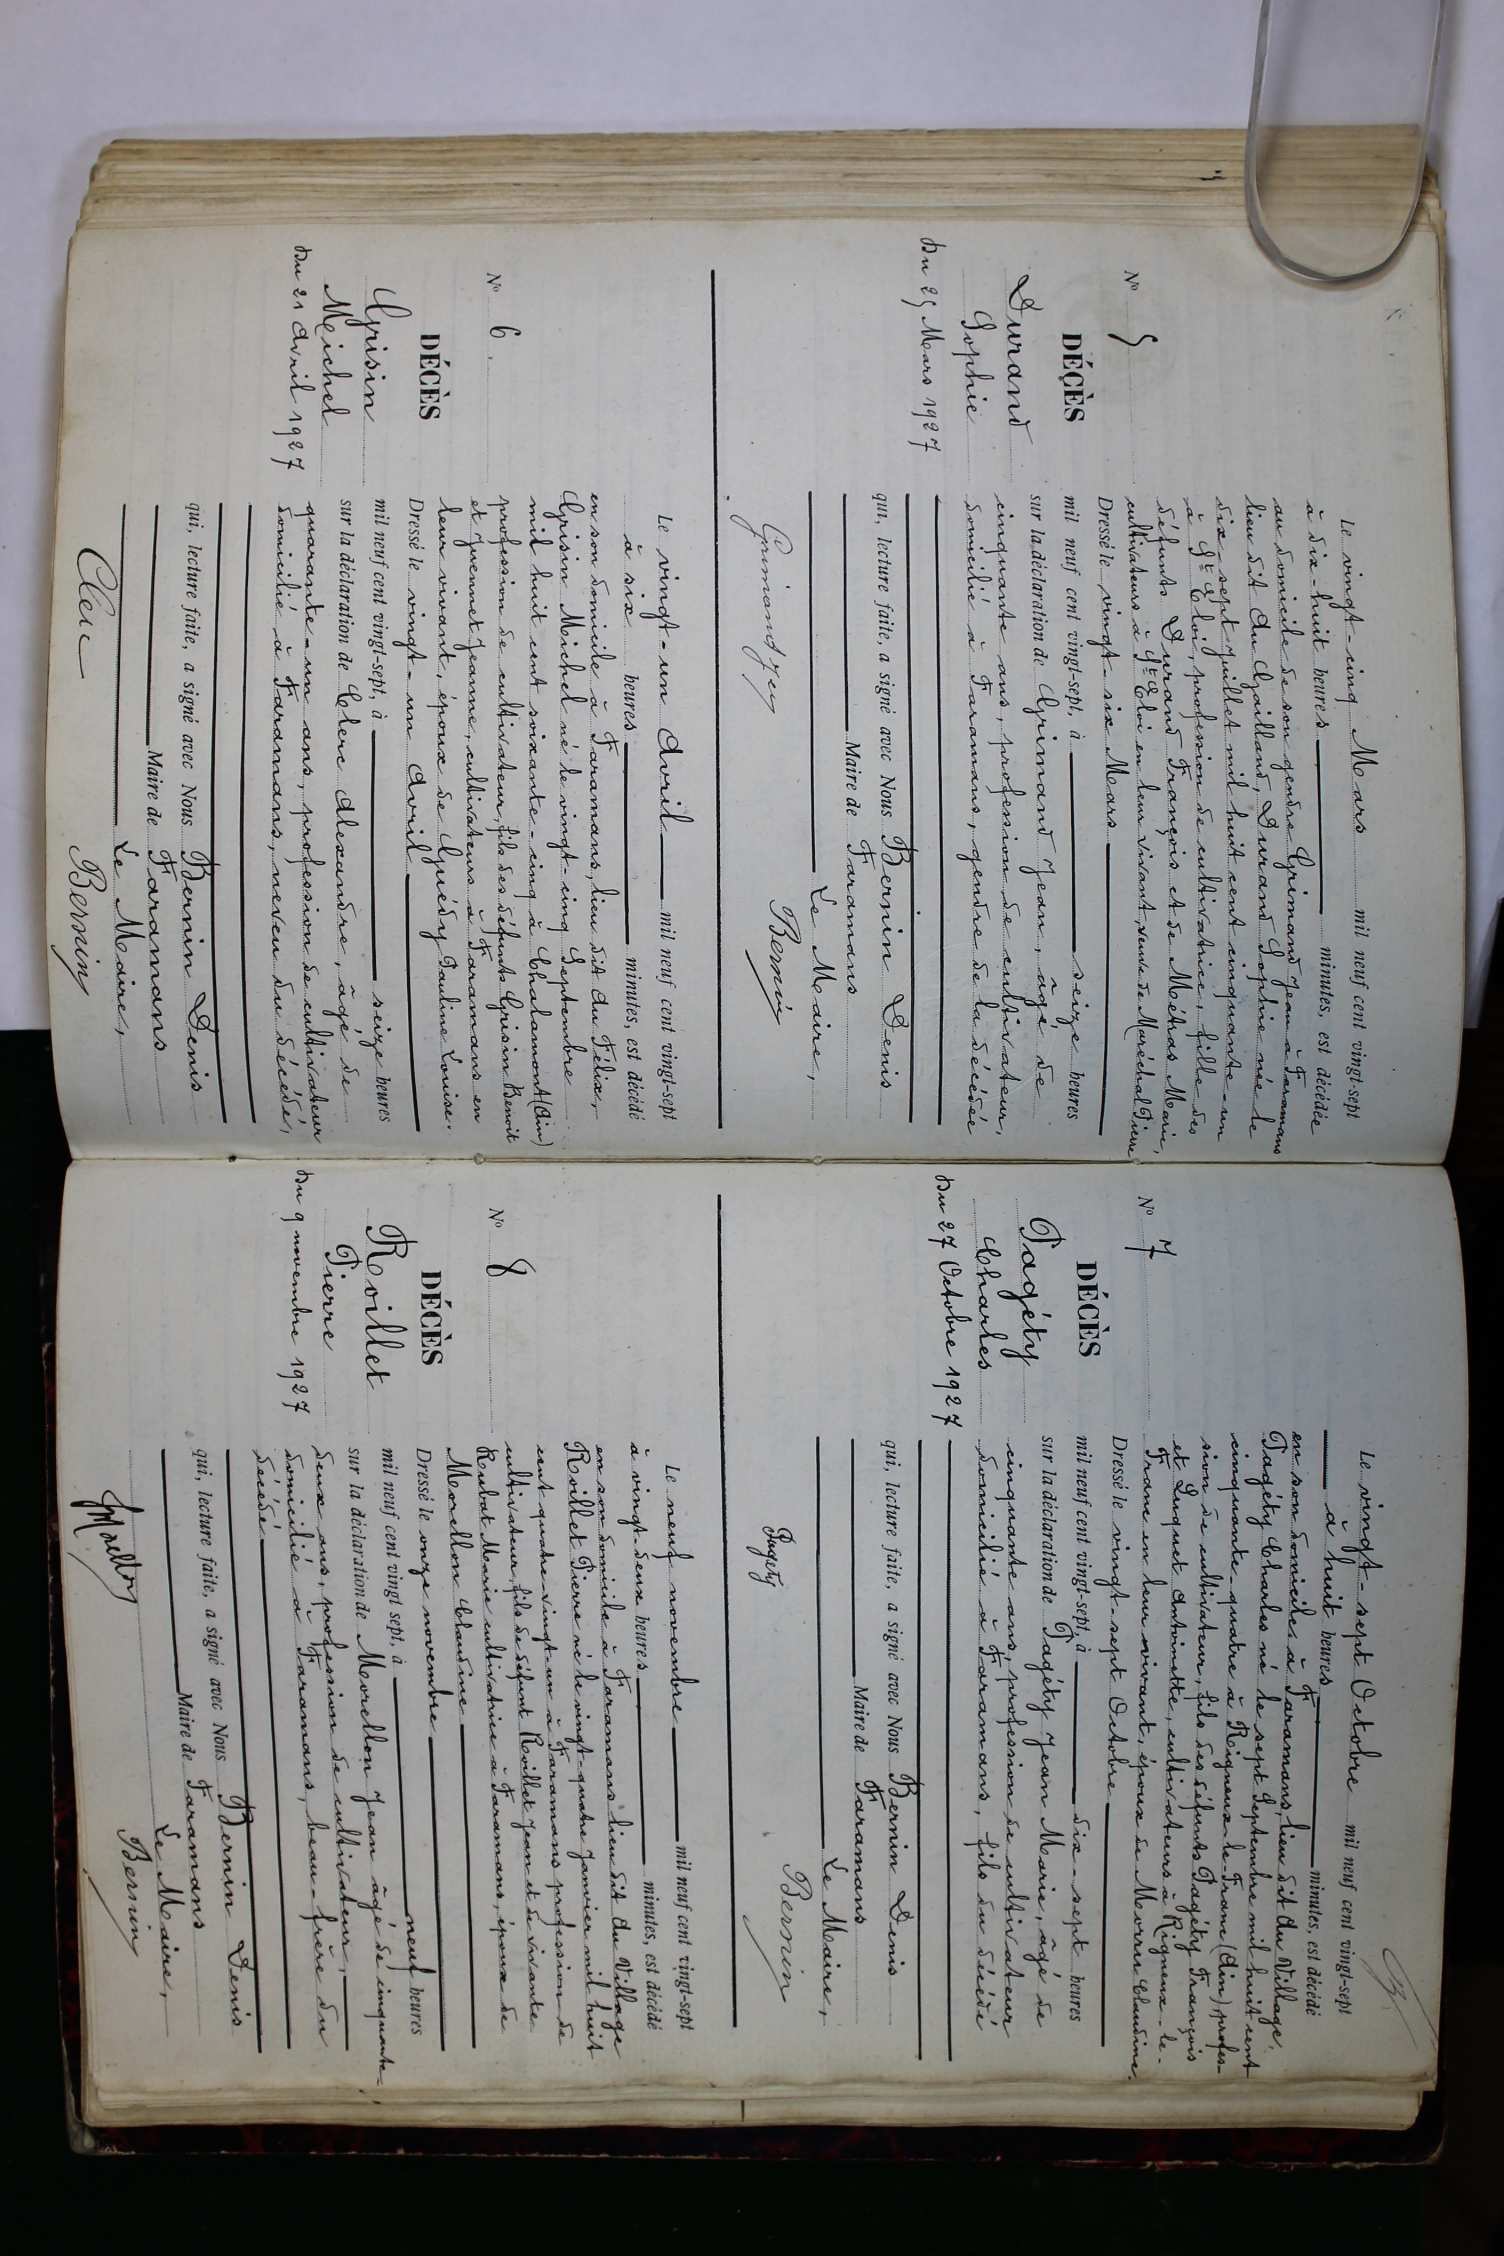 N° 5
DÉCÈS
Durand
Sophie
Du 25 Mars 1927
Le vingt-cinq Mars mil neuf cent vingt-sept
à dix-huit heures minutes, est décédée
au domicile de son gendre Grimand Jean à Faramans
lieu dit du Gaillard, Durand Sophie née le
dix sept Juillet mil huit cent cinquante-un
à Ste Eloi, profession de cultivatrice, fille des
défunts Durand François et de Métras Marie,
cultivateurs à Ste Eloi en leur vivant, veuve de Maréchal Pierre
Dressé le vingt-six Mars
mil neuf cent vingt-sept, à seize heures
sur la déclaration de Grimand Jean, âgé de
cinquante ans, profession de cultivateur,
domicilié à Faramans, gendre de la décédée
qui, lecture faite, a signé avec Nous Bernin Denis
Maire de Faramans
Le Maire,
Grimand
Bernin
N° 6.
DÉCÈS
Grisin
Michel
Du 21 Avril 1927
Le vingt-un Avril mil neuf cent vingt-sept
à six heures minutes, est décédé
en son domicile à Faramans, lieu dit du Félix,
Grisin Michel né le vingt-cinq Septembre
mil huit cent soixante-cinq à Chalamont (Ain)
profession de cultivateur, fils des défunts Grisin Benoit
et Juennet Jeanne, cultivateurs à Faramans en
leur vivant, époux de Guédy Pauline Louise.
Dressé le vingt-un Avril
mil neuf cent vingt-sept, à seize heures
sur la déclaration de Clerc Alexandre, âgé de
quarante-un ans, profession de cultivateur
domicilié à Faramans, neveu du décédé,
qui, lecture faite, a signé avec Nous Bernin Denis
Maire de Faramans
Le Maire,
Clerc
Bernin
N° 7
DÉCÈS
Pagéty
Charles
Du 27 Octobre 1927
Le vingt-sept Octobre mil neuf cent vingt-sept
à huit heures minutes, est décédé
en son domicile à Faramans, lieu dit du Village,
Pagéty Charles né le sept Septembre mil huit cent
cinquante-quatre à Rigneux-le-Franc (Ain) profes-
sion de cultivateur, fils des défunts Pagéty François
et Luquet Antoinette, cultivateurs à Rigneux-le-
Franc en leur vivant, époux de Morrer Claudine.
Dressé le vingt-sept Octobre
mil neuf cent vingt-sept, à dix-sept heures
sur la déclaration de Pagéty Jean Marie, âgé de
cinquante ans, profession de cultivateur
domicilié à Faramans, fils du décédé
qui, lecture faite, a signé avec Nous Bernin Denis
Maire de Faramans
Le Maire,
Pagéty
Bernin
N° 8
DÉCÈS
Roillet
Pierre
Du 9 novembre 1927
Le neuf novembre mil neuf cent vingt-sept
à vingt-deux heures minutes, est décédé
en son domicile à Faramans lieu dit du Village
Roillet Pierre né le vingt-quatre janvier mil huit
cent quatre-vingt-un à Faramans profession de
cultivateur, fils de défunt Roillet Jean et de vivante
Rubat Marie cultivatrice à Faramans, époux de
Morellon Claudine
Dressé le onze novembre
mil neuf cent vingt sept, à neuf heures
sur la déclaration de Morellon Jean âgé de cinquante-
deux ans, profession de cultivateur,
domicilié à Faramans, beau-frère du
décédé
qui, lecture faite, a signé avec Nous Bernin Denis
Maire de Faramans
Le Maire,
Bernin